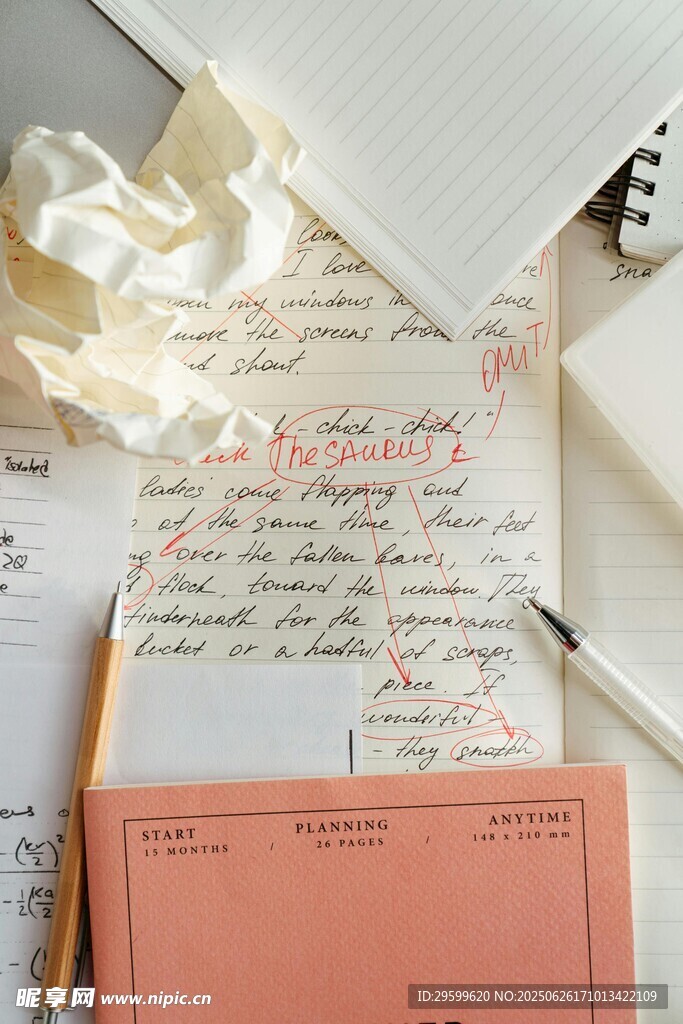 look,
I love
my windows in once
move the screens from the
shout.
OMIT
- chick - chick! "
THESAURUS
ladies come flapping and
at the same time, their feet
over the fallen leaves, in a
flock, toward the window. They
for the appearance
bucket or a hatful of scraps,
piece. If
wonderful -
- they snatch
sna
isolated
2Q
START
15 MONTHS
/
PLANNING
26 PAGES
/
ANYTIME
148 x 210 mm
昵享网 www.nipic.cn
ID:29599620 NO:20250626171013422109